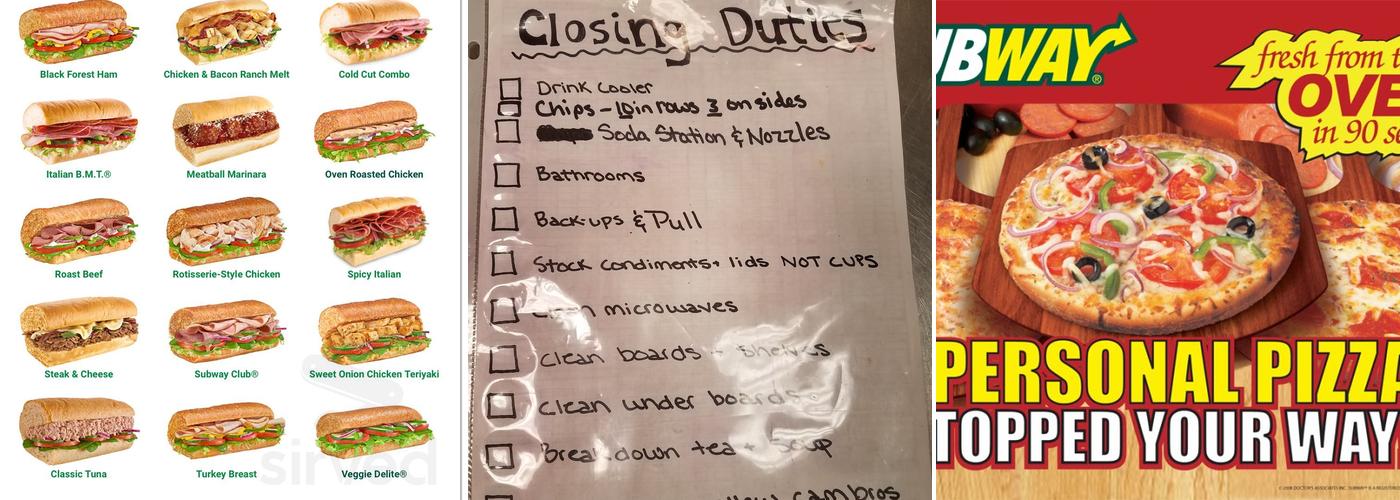 Black Forest Ham
Chicken & Bacon Ranch Melt
Cold Cut Combo
Italian B.M.T.®
Meatball Marinara
Oven Roasted Chicken
Roast Beef
Rotisserie-Style Chicken
Spicy Italian
Steak & Cheese
Subway Club®
Sweet Onion Chicken Teriyaki
Classic Tuna
Turkey Breast
Veggie Delite®
sirved
Closing Duties
Drink Cooler
Chips - 10 in rows 3 on sides
Soda Station & Nozzles
Bathrooms
Back-ups & Pull
Stock condiments + lids NOT CUPS
Clean microwaves
Clean boards + Shelves
Clean under boards
Break down tea + Soup
cambros
UBWAY®
fresh from t
OVE
in 90 se
PERSONAL PIZZA
TOPPED YOUR WAY